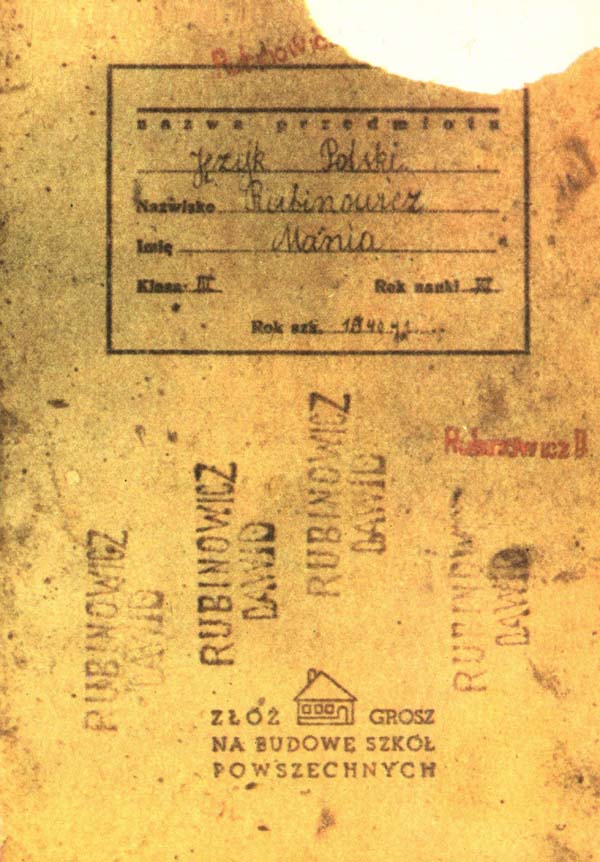 Rubinowicz
nazwa przedmiotu
Język Polski
Nazwisko Rubinowicz
Imię Mania
Klasa III Rok nauki IV
Rok szk. 1940-41
Rubinowicz D
RUBINOWICZ
DAWID
RUBINOWICZ
DAWID
RUBINOWICZ
DAWID
RUBINOWICZ
DAWID
ZŁÓŻ GROSZ
NA BUDOWĘ SZKÓŁ
POWSZECHNYCH